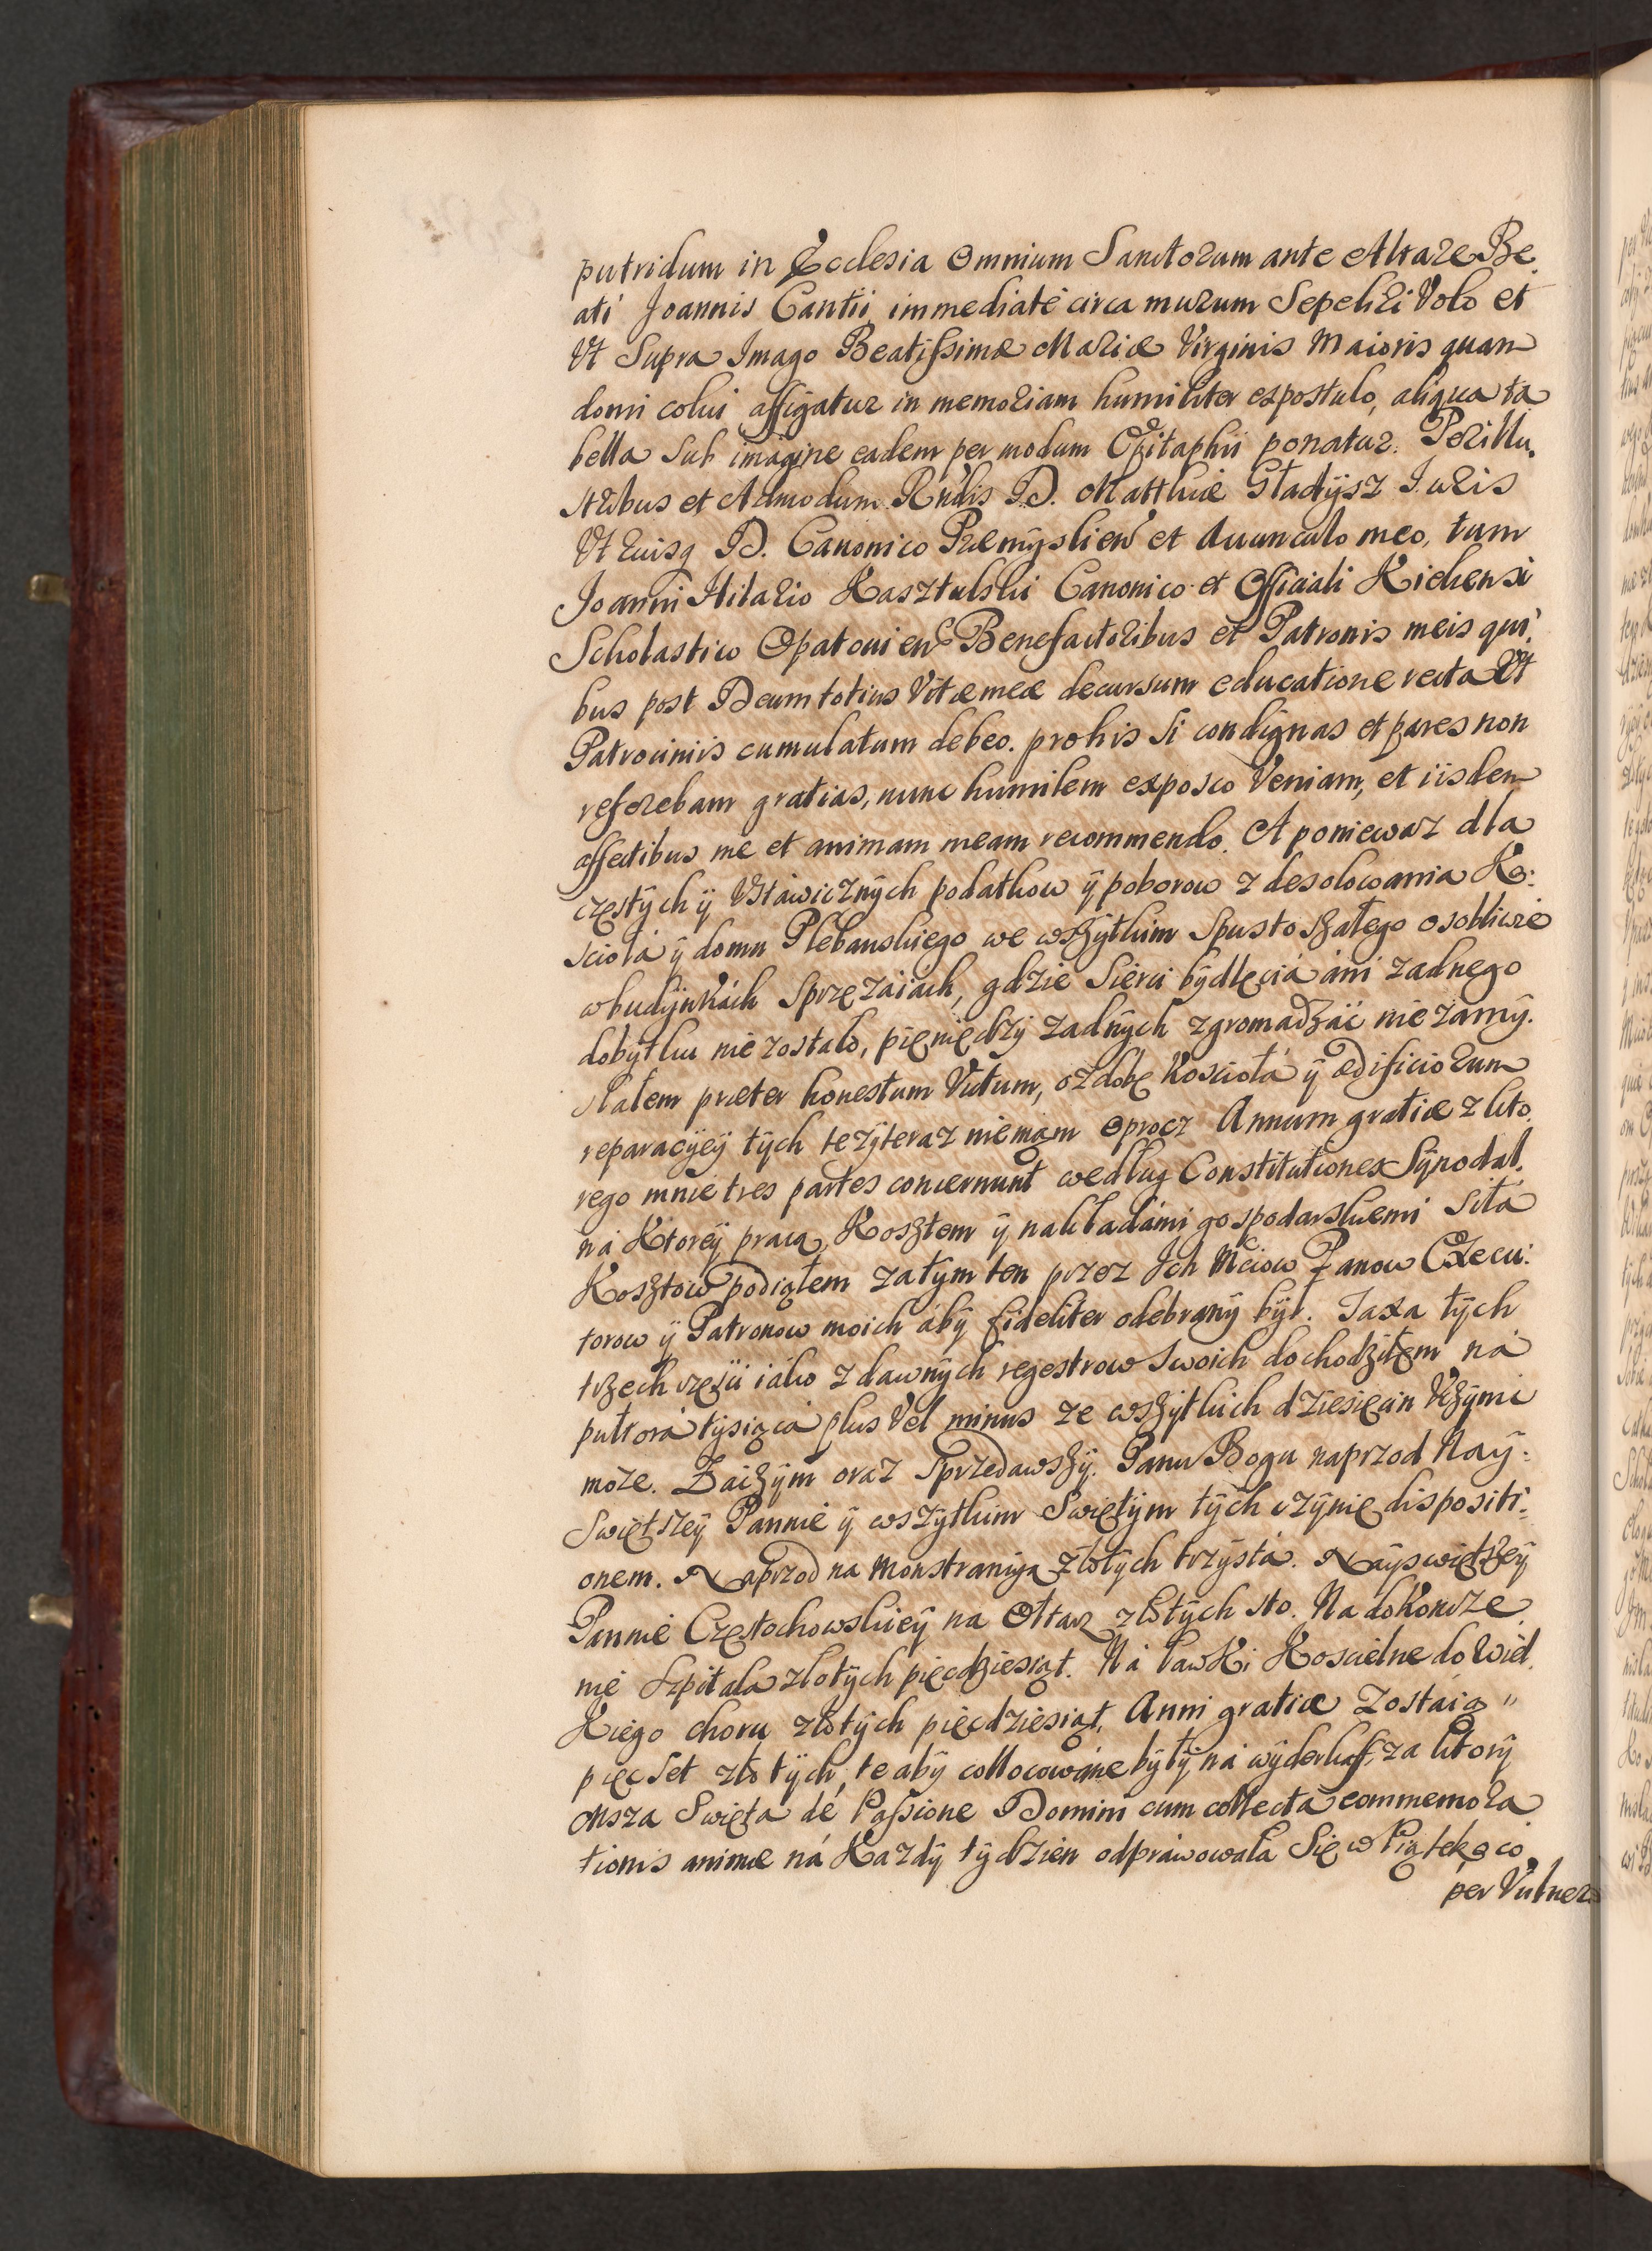 putridum in Ecclesia Omnium Sanctorum ante Altare Be.
ati Joannis Cantii immediaté circa murum Sepeliri Volo et
Vt Supra Imago Beatissimæ Mariæ Virginis Maioris quam
domi colui affigatur in memoriam humiliter expostulo, aliqua ta
bella Sub imagine eadem per modum Epitaphii ponatur. Perillu,
stribus et Admodum Rndis D. Matthiæ Gładÿsz Iuris
Vtriusq D. Canonico Præmÿslien et Auunculo meo, tum
Joanni Hilario Kasztelski Canonico et Officiali Kielcensi
Scholastico Opatouien Benefactoribus et Patronis meis qui.
bus post Deum totius Vitæ meæ decursum educatione recta Et
Patrociniis cumulatum debeo. pro his Si condignas et pares non
referebam gratias, nunc humilem exposco Veniam, et iisdem
affectibus me et animam meam recommendo. A poniewaz dla
częstÿch ÿ Vstáwicznÿch podatkow ÿ poborow z desolowania Ko:
scioła ÿ domu Plebanskiego we wszÿtkim Spustoszałego osobliwie
w budÿnkách Sprzęzáiach, gdzie Sierci bÿdlęciá áni zadnego
dobÿtku nie zostało, pięniędzÿ zadnÿch zgromadzáć nie zamÿ.
slałem præter honestum Victum, ozdobę koscioła ÿ ædificiorum
reparacÿeÿ tÿch też ÿ teraz nie mąm oprocz Annum gratiæ z kto.
rego mnie tres partes concernunt według Constitutiones Sÿnodal.
ná Ktoreÿ pracą Kosztem ÿ nakładámi gospodarskiemi Siłá
Kosztow podiąłem zatÿm ten przez Jch Mciow Panow Execu:
torow ÿ Patronow moich ábÿ fideliter odebranÿ bÿł. Taxa tÿch
trzech częsci iáko z dawnÿch regestrow Swoich dochodziłem ná
pułtorá tÿsiącá plus Vel minus ze wszÿtkich dziesięcin Vczÿnić
moze. Zaczÿm oraz Sprzedawszÿ. Panu Bogu naprzod Naÿ:
Swiętszeÿ Pannie ÿ wszÿtkim Swiętÿm tÿch czÿnię dispositi:
onem. Naprzod na Monstrancÿą złotÿch trzÿstá. Naÿswiętszeÿ
Pannie Częstochowskieÿ na Ołtarz złotÿch sto. Na dokoncze
nie Szpitala złotÿch pięcdziesiąt. Ná ławki Koscielne do wiel.
kiego choru złotÿch pięcdziesiąt. Anni gratiæ Zostáią "
pięcset złotÿch, te abÿ collocowáne bÿłÿ ná wÿderkaff, za ktorÿ
Msza Swięta de Passione Domini cum collecta commemora
tionis animæ ná Kazdÿ tÿdzien odpráwowała Się w Piątek o co
per Vulner.